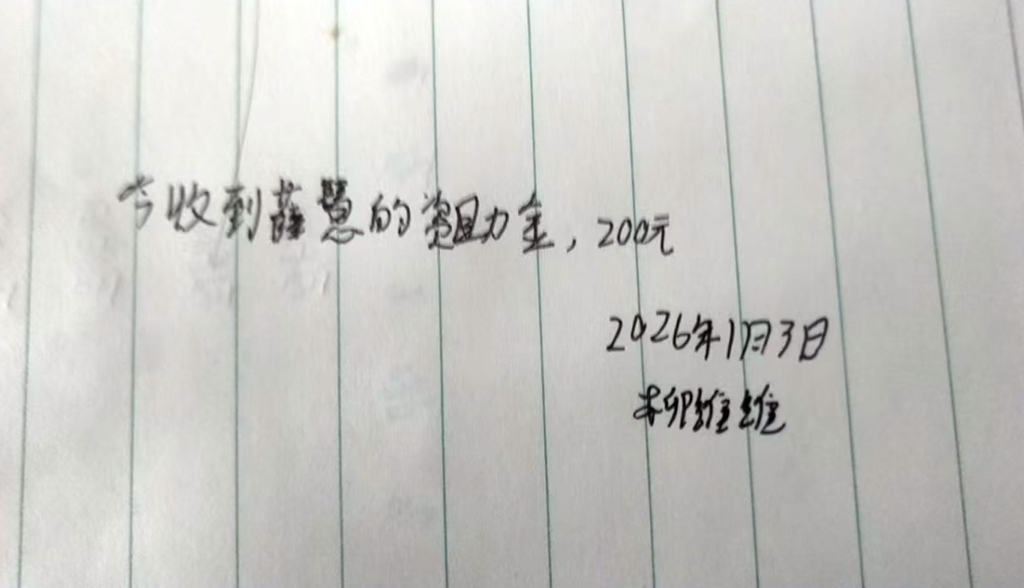 今收到薛慧的资助金，200元
2026年1月3日
柳维维